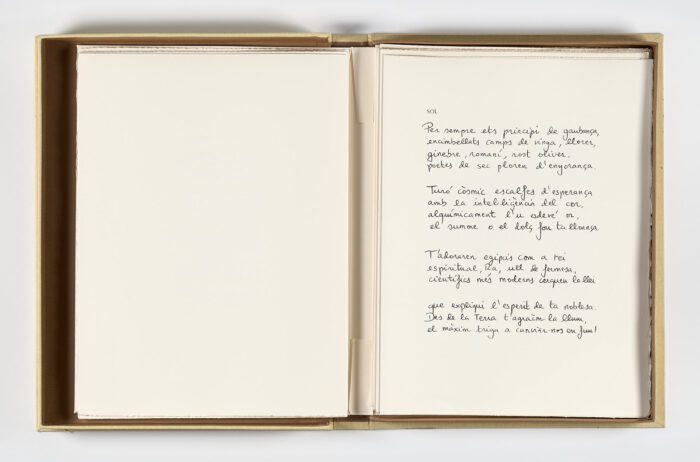 SOL
Per sempre ets principi de gaubança,
encimbellats camps de vinya, llorer,
ginebre, romaní, rost oliver.
poetes de sec ploren d'enyorança.
Turó còsmic escalfes d'esperança
amb la intel·ligència del cor,
alquímicament l'u esdevé or,
el summe o el dolç fou ta lloança.
T'adoraren egipcis com a rei
espiritual, Ra, ull de fermesa,
científics més moderns cerquen la llei
que expliqui l'esperit de ta noblesa.
Des de la Terra t'agraïm la llum,
el màxim triga a canviar-nos en fum!